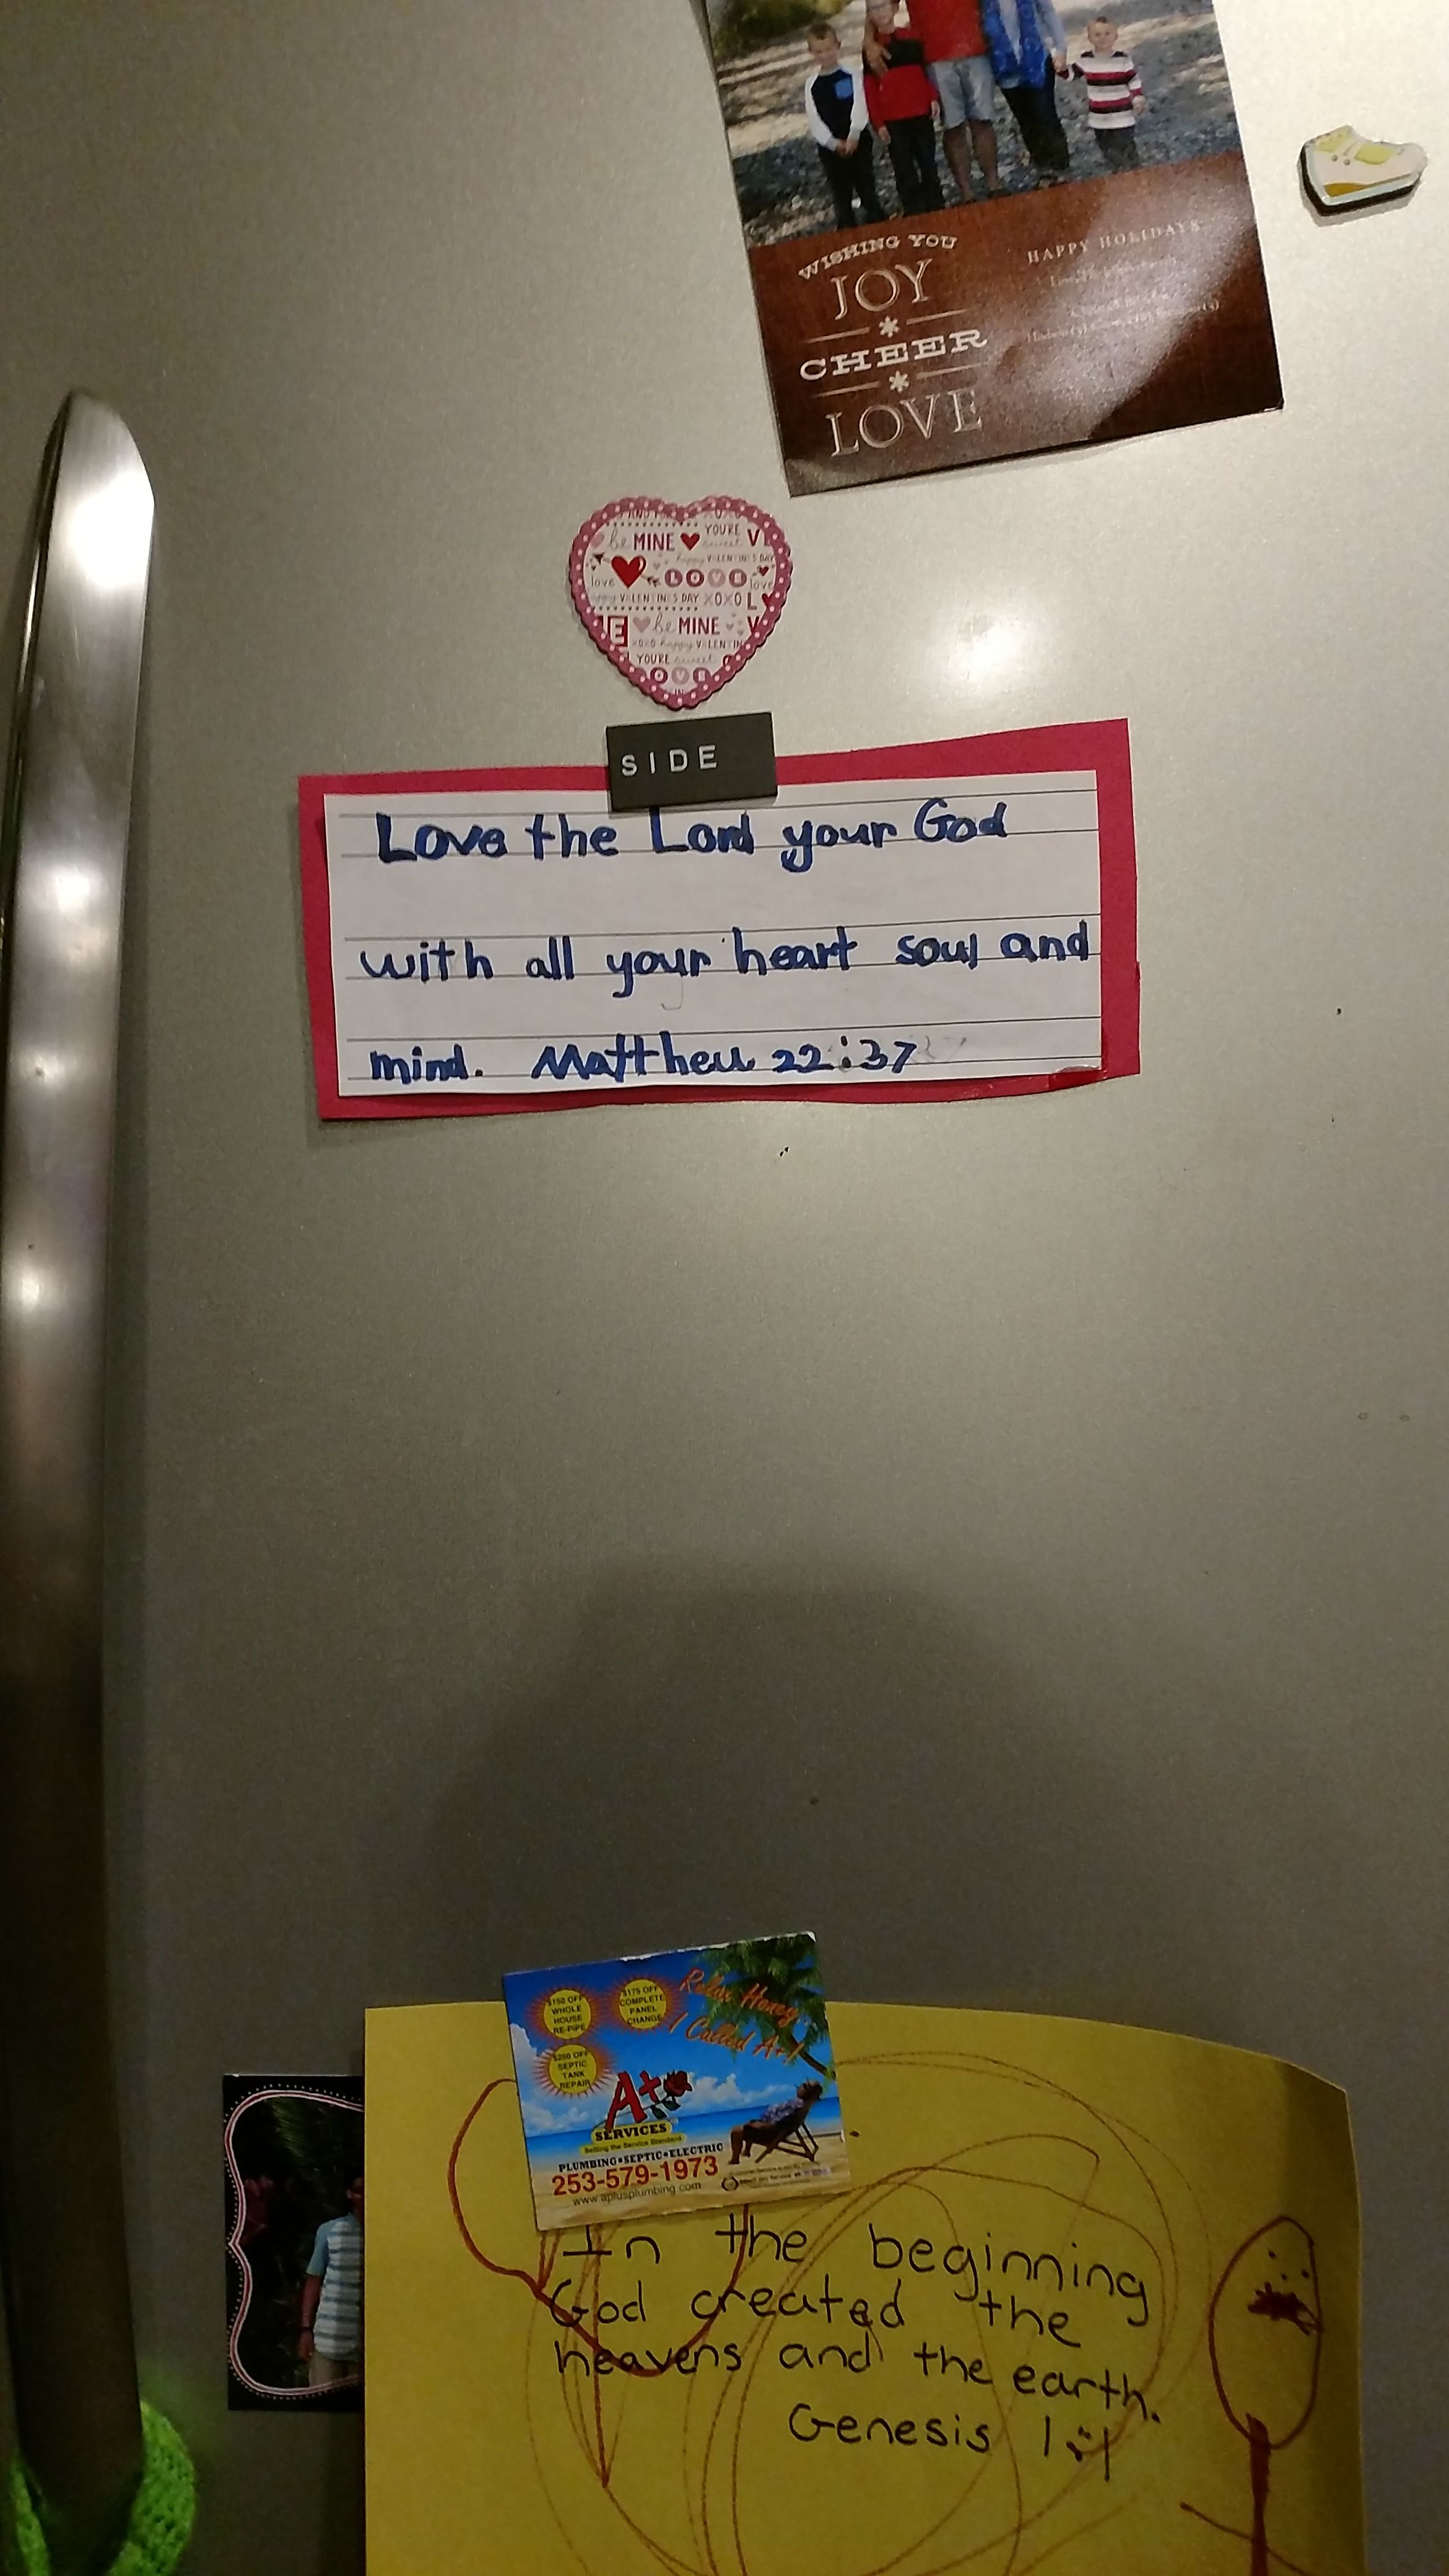 WISHING YOU
JOY
CHEER
LOVE
HAPPY HOLIDAYS
YOURE
be MINE
sweet
happy VALENTINES DAY
love LOVE love
VALENTINES DAY XOXO L
E be MINE V
XOXO happy VALENTIN
YOURE sweet
OVE
SIDE
Love the Lord your God
with all your heart soul and
mind. Matthew 22:37
$150 OFF
WHOLE
HOUSE
RE-PIPE
$175 OFF
COMPLETE
PANEL
CHANGE
Relax Honey,
I Called A+!
SEPTIC
TANK
REPAIR
A+
SERVICES
Setting the Service Standard
PLUMBING•SEPTIC•ELECTRIC
253-579-1973
www.aplusplumbing.com
In the beginning
God created the
heavens and the earth.
Genesis 1:1